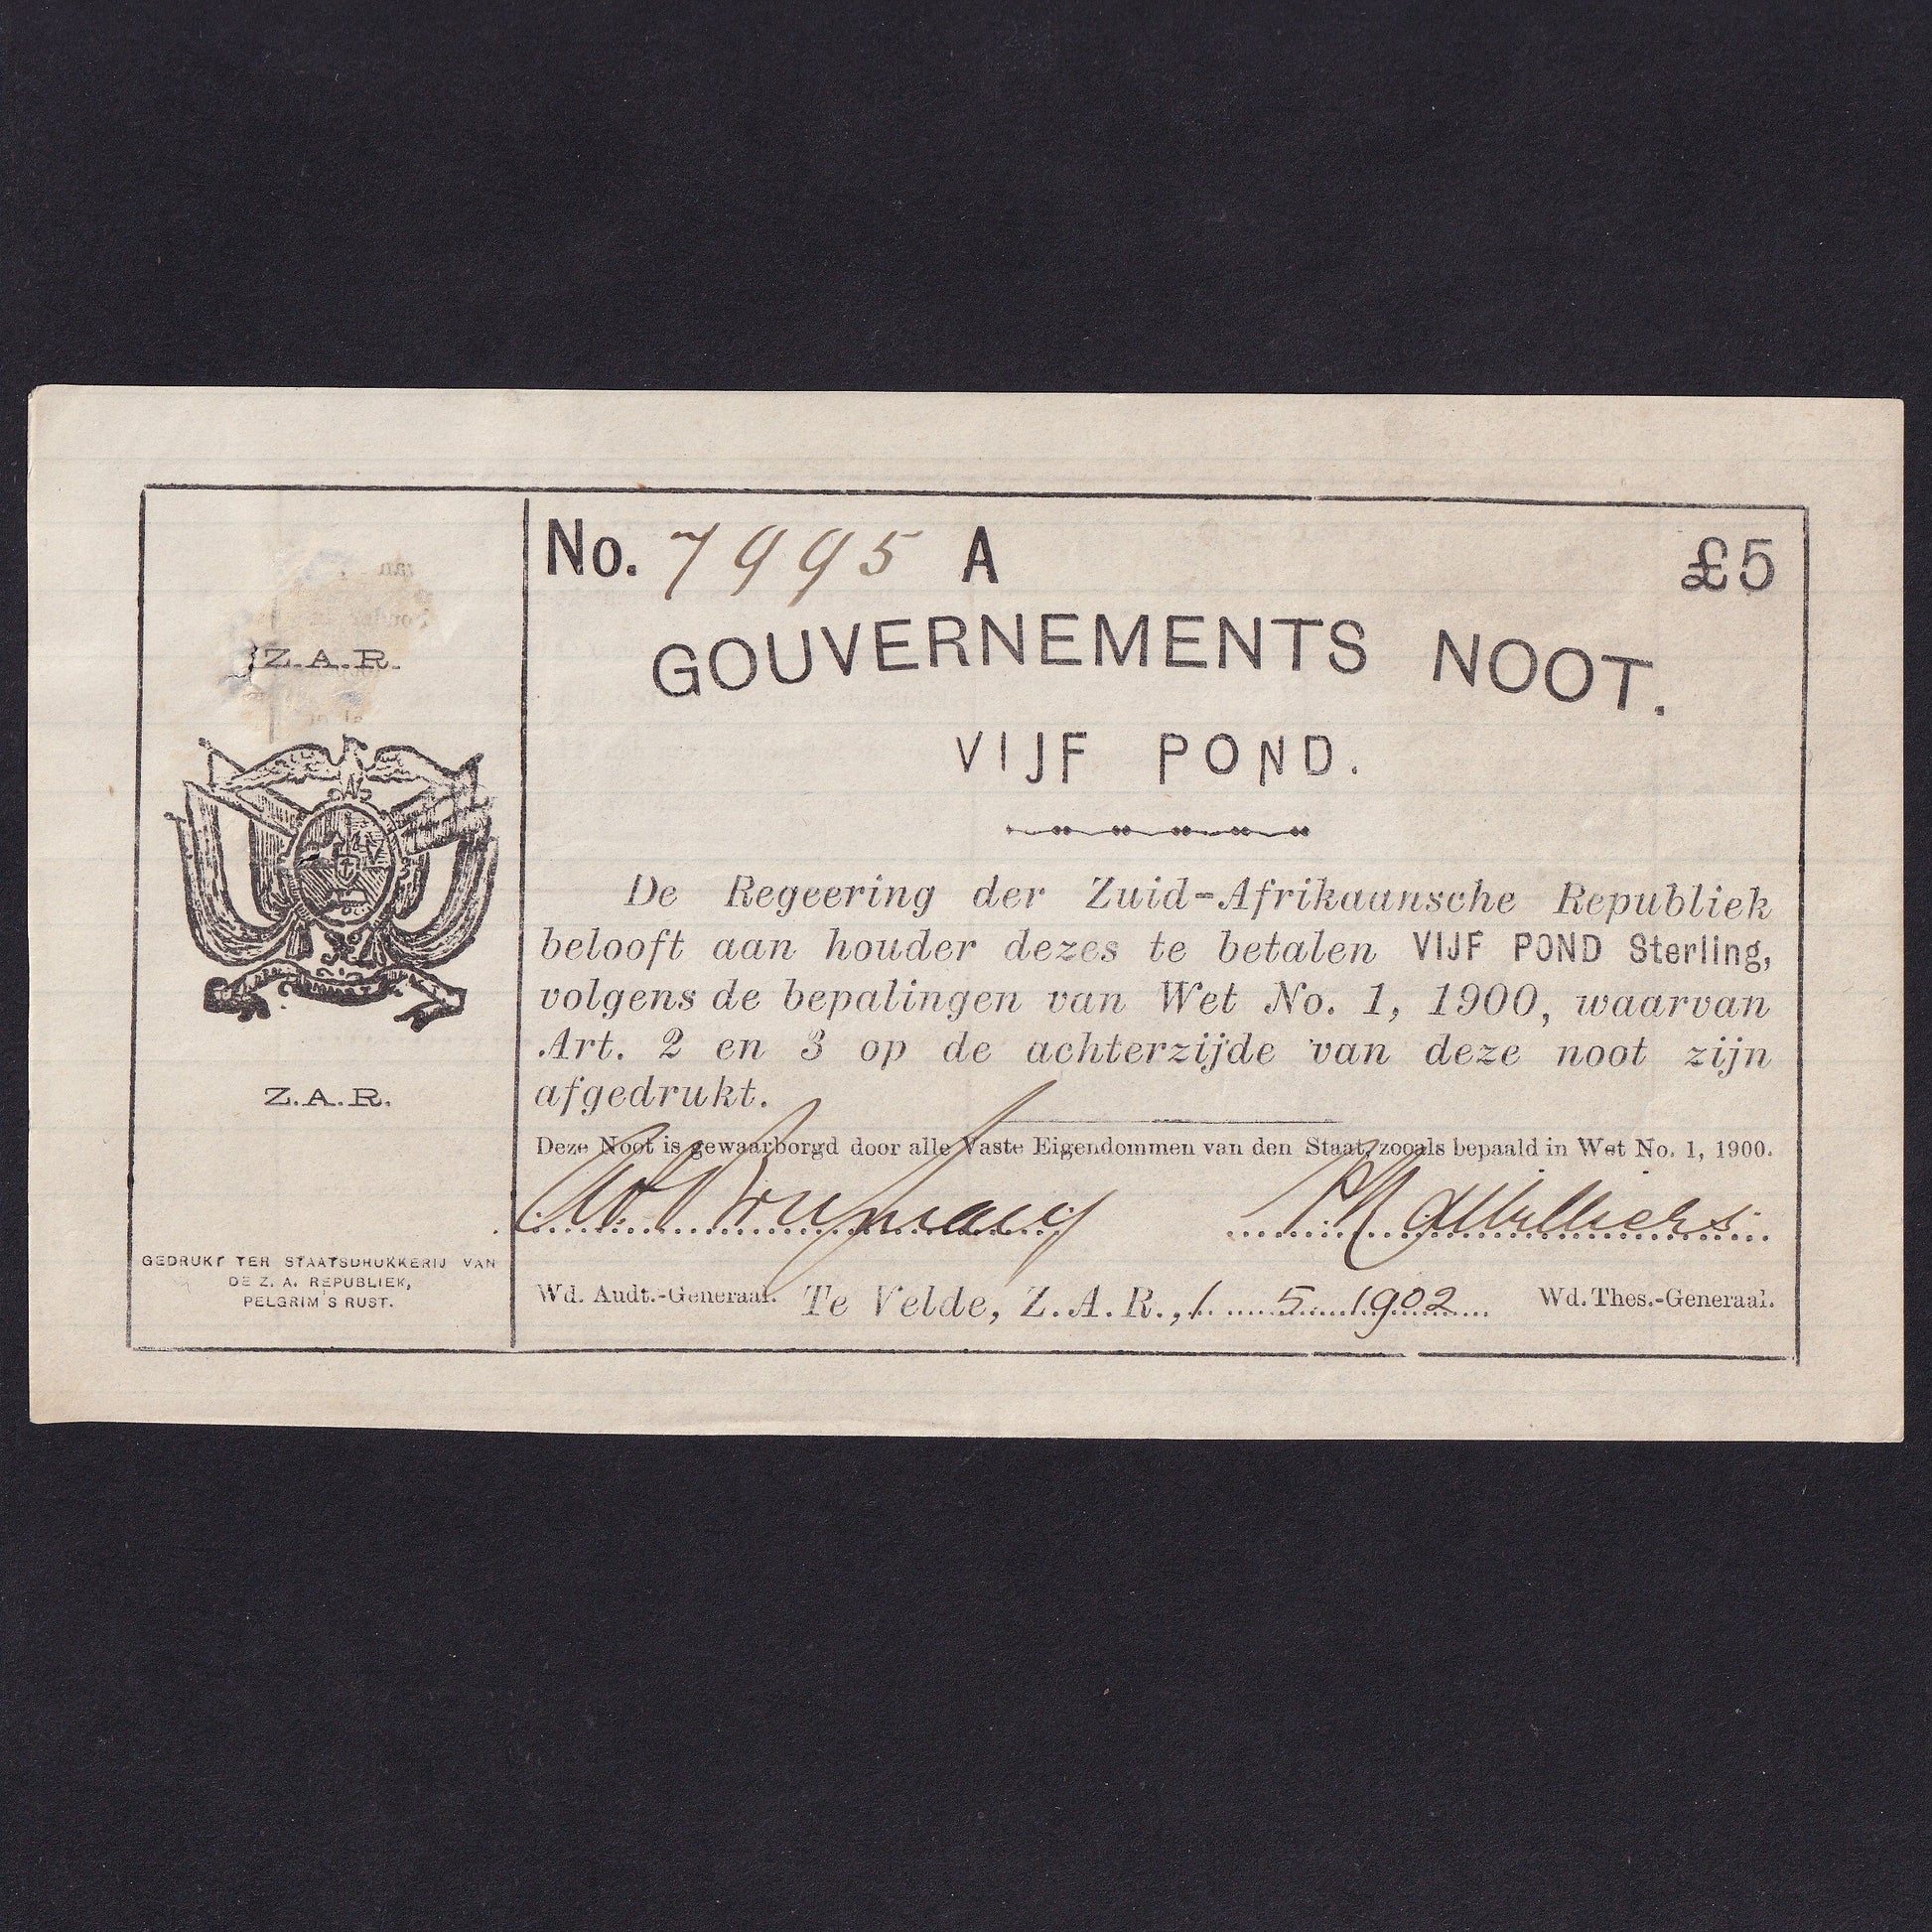 Z.A.R.
Z.A.R.
GEDRUKT TER STAATSDRUKKERIJ VAN
DE Z. A. REPUBLIEK,
PELGRIM S RUST.
No. 7995 A
£5
GOUVERNEMENTS NOOT.
VIJF POND.
De Regeering der Zuid-Afrikaansche Republiek
belooft aan houder dezes te betalen VIJF POND Sterling,
volgens de bepalingen van Wet No. 1, 1900, waarvan
Art. 2 en 3 op de achterzijde van deze noot zijn
afgedrukt.
Deze Noot is gewaarborgd door alle Vaste Eigendommen van den Staat, zooals bepaald in Wet No. 1, 1900.
Wd. Audt.-Generaal. Te Velde, Z.A.R., 1 5 1902 Wd. Thes.-Generaal.